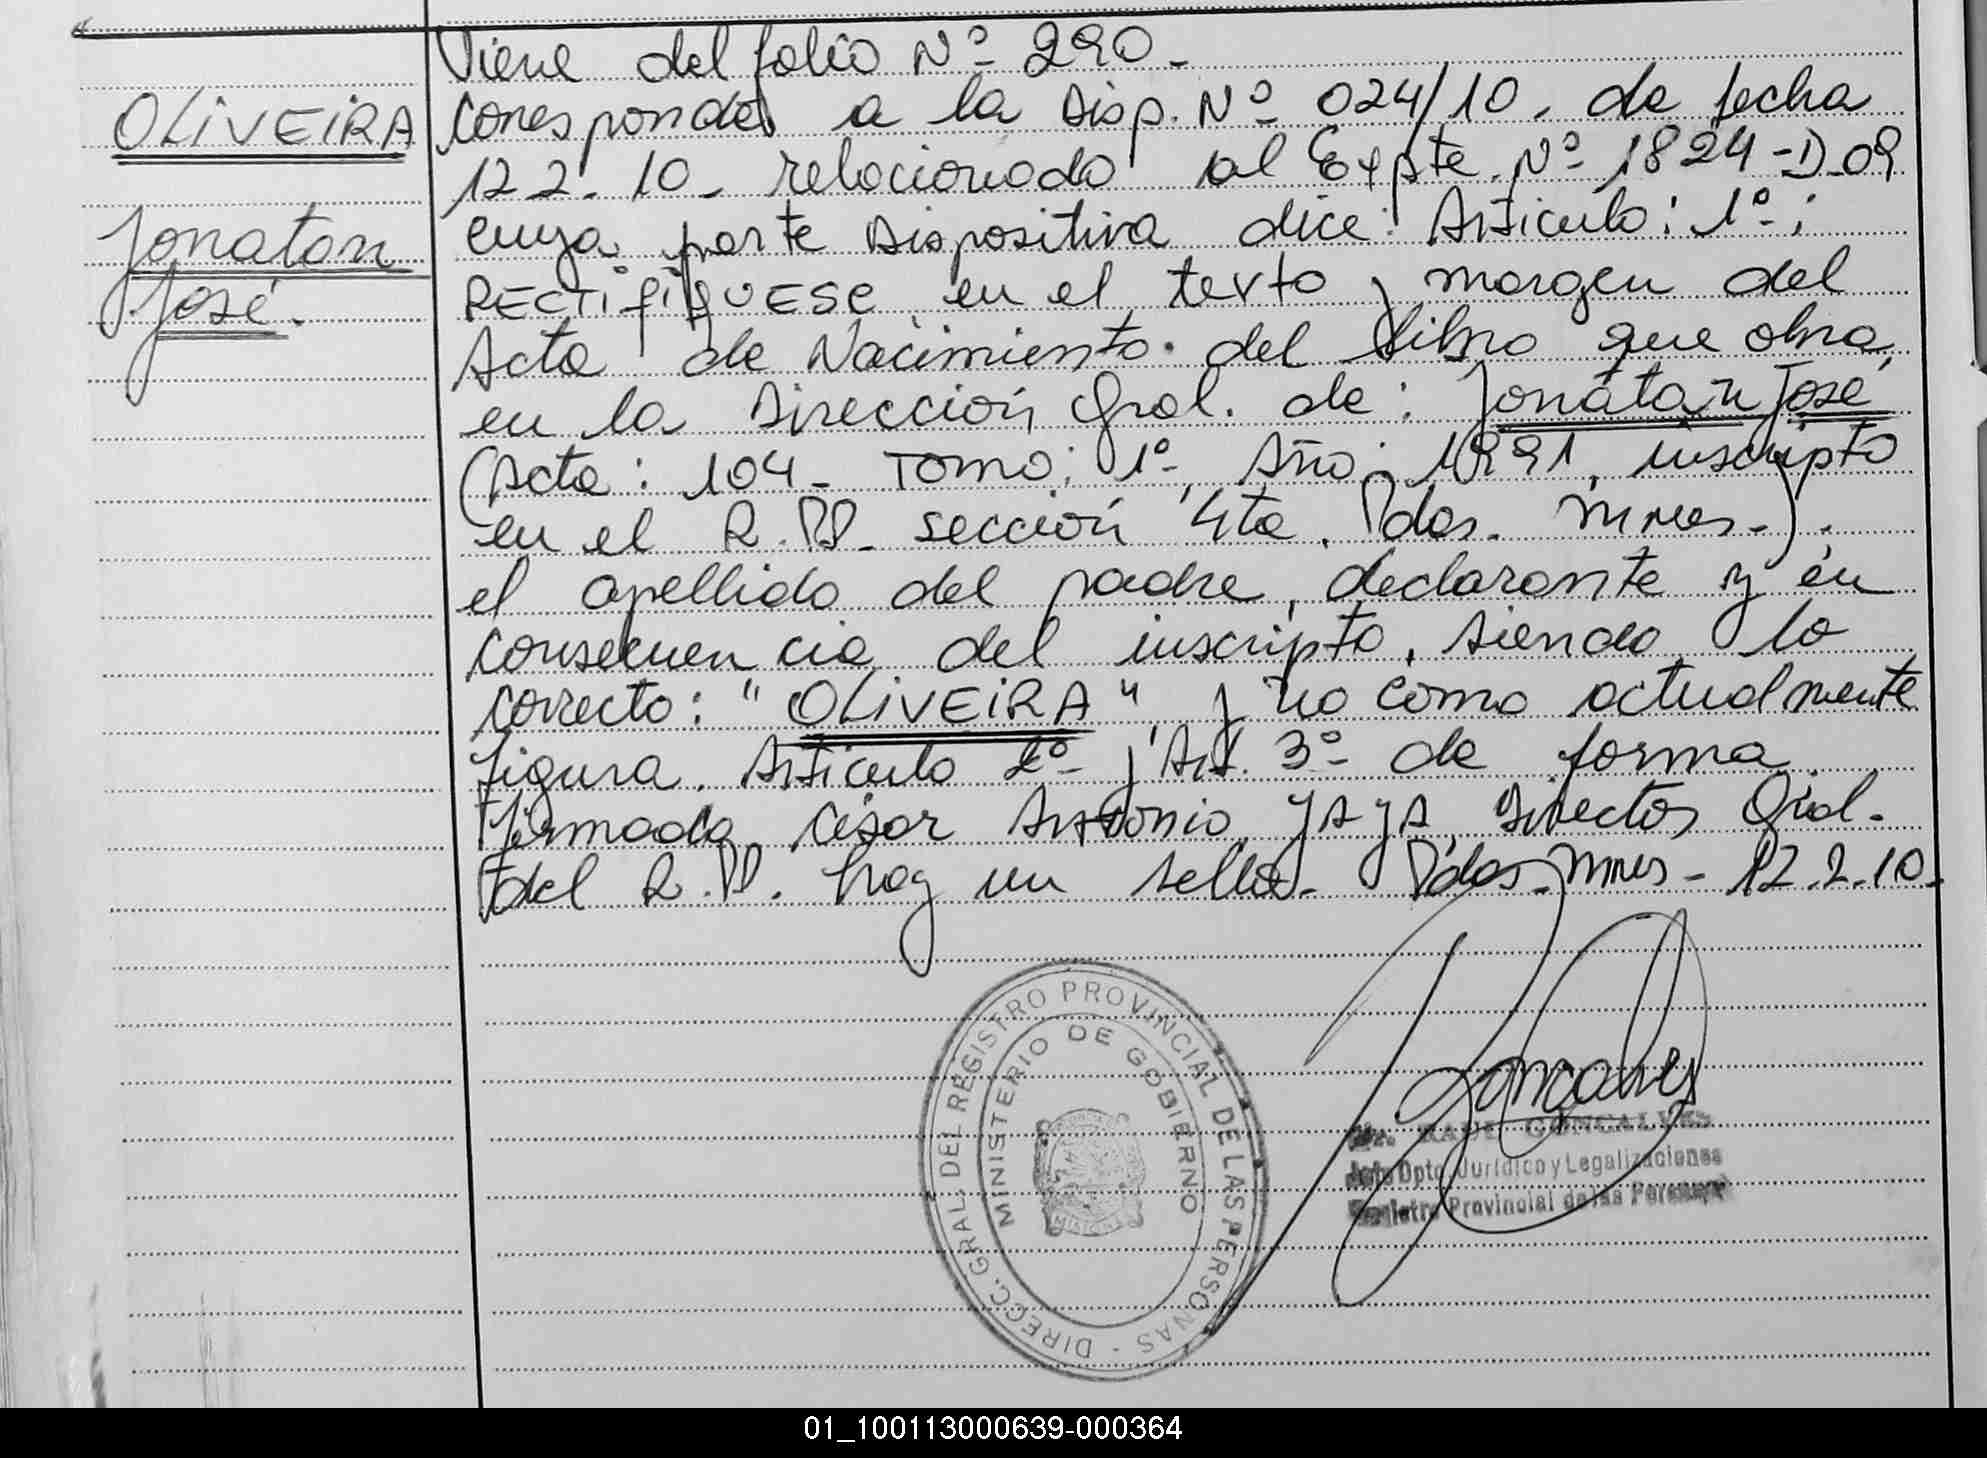 Viene del folio Nº 290.-
OLIVEIRA
Jonatan
José.
Corresponde a la Disp. Nº 024/10. de fecha
12-2-10- relacionado al Expte. Nº 1824-D-09
cuya parte dispositiva dice: Artículo: 1º-:
RECTIFÍQUESE en el texto y margen del
Acta de Nacimiento del libro que obra,
en la Dirección Gral. de: Jonatan José
(Acta: 104- Tomo: 1º, Año: 1991, inscripto
en el R.PP. sección 4ta. Pdas. Mnes-).
el apellido del padre, declarante y en
consecuencia del inscripto, siendo lo
correcto: "OLIVEIRA" y no como actualmente
figura. Artículo 2º- y Art. 3º- de forma
firmado César Antonio YAYA, Director Gral.
del R.PP. hay un sello- Pdas. Mnes- 12.2.10.-
DIRECC. GRAL. DEL REGISTRO PROVINCIAL DE LAS PERSONAS -
MINISTERIO DE GOBIERNO
MISIONES
Goncalves
RAUL GONCALVES
Jefe Dpto. Jurídico y Legalizaciones
Registro Provincial de las Personas
01_100113000639-000364